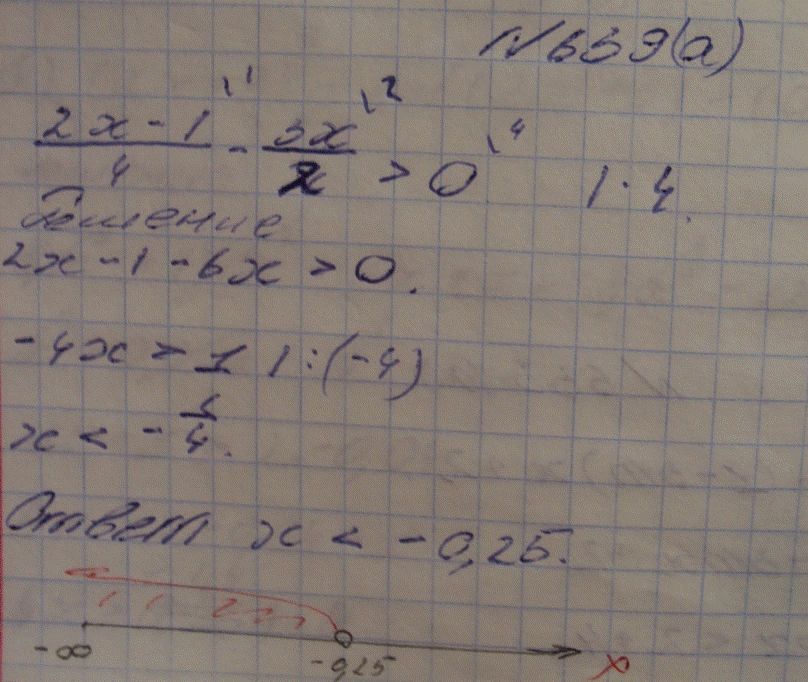 N 639(а)
\1 \2 \4
(2x - 1)/4 - 3x/2 > 0 | · 4.
Решение
2x - 1 - 6x > 0.
-4x > 1 | : (-4)
x < - 1/4.
Ответ x < - 0,25.
-∞ -0,25 x